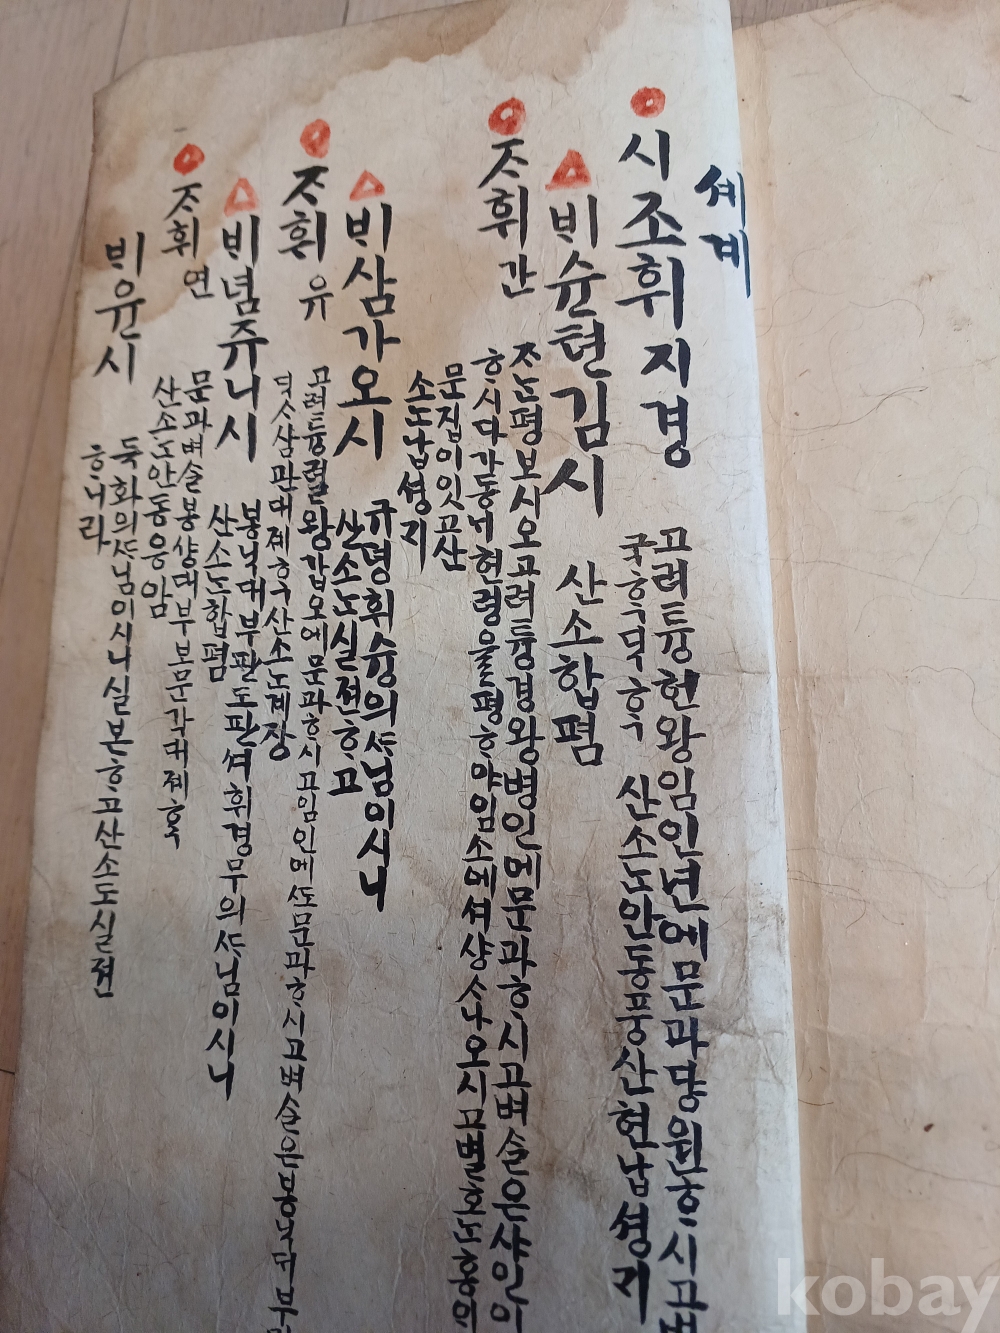 셰계
시조휘지경
고려튱현왕임인년에문과댱원ᄒᆞ시고벼
국ᄒᆞᆨᄃᆡᆨᄒᆞᆨ 산소ᄂᆞᆫ안동풍산현납셩ᄌᆡ
비슌현김시 산소합폄
ᄌᆞ휘간
ᄌᆞᄂᆞᆫ평보시오고려튱경왕병인에문과ᄒᆞ시고벼슬은샤인이
ᄒᆞ시다가동ᄂᆡ현령을평ᄒᆞ야임소에셔샹ᄉᆞ나오시고별호ᄂᆞᆫ홍의
문집이잇고산
소ᄂᆞᆫ납셩ᄌᆡ
비삼가오시
규뎡휘슝의ᄯᆞ님이시니
산소ᄂᆞᆫ실젼ᄒᆞ고
ᄌᆞ휘유
고려튱렬왕갑오에문과ᄒᆞ시고임인에ᄯᅩ문과ᄒᆞ시고벼슬은봉닉대부
덕ᄉᆞ삼관대졔ᄒᆞᆨ산소ᄂᆞᆫ계장
비념쥬니시
봉닉대부판도판셔휘경무의ᄯᆞ님이시니
산소ᄂᆞᆫ합폄
ᄌᆞ휘연
문과벼슬봉샹대부보문각대졔ᄒᆞᆨ
산소ᄂᆞᆫ안동웅암
비윤시
둑화의ᄯᆞ님이시니실본ᄒᆞ고산소도실젼
ᄒᆞ니라
kobay